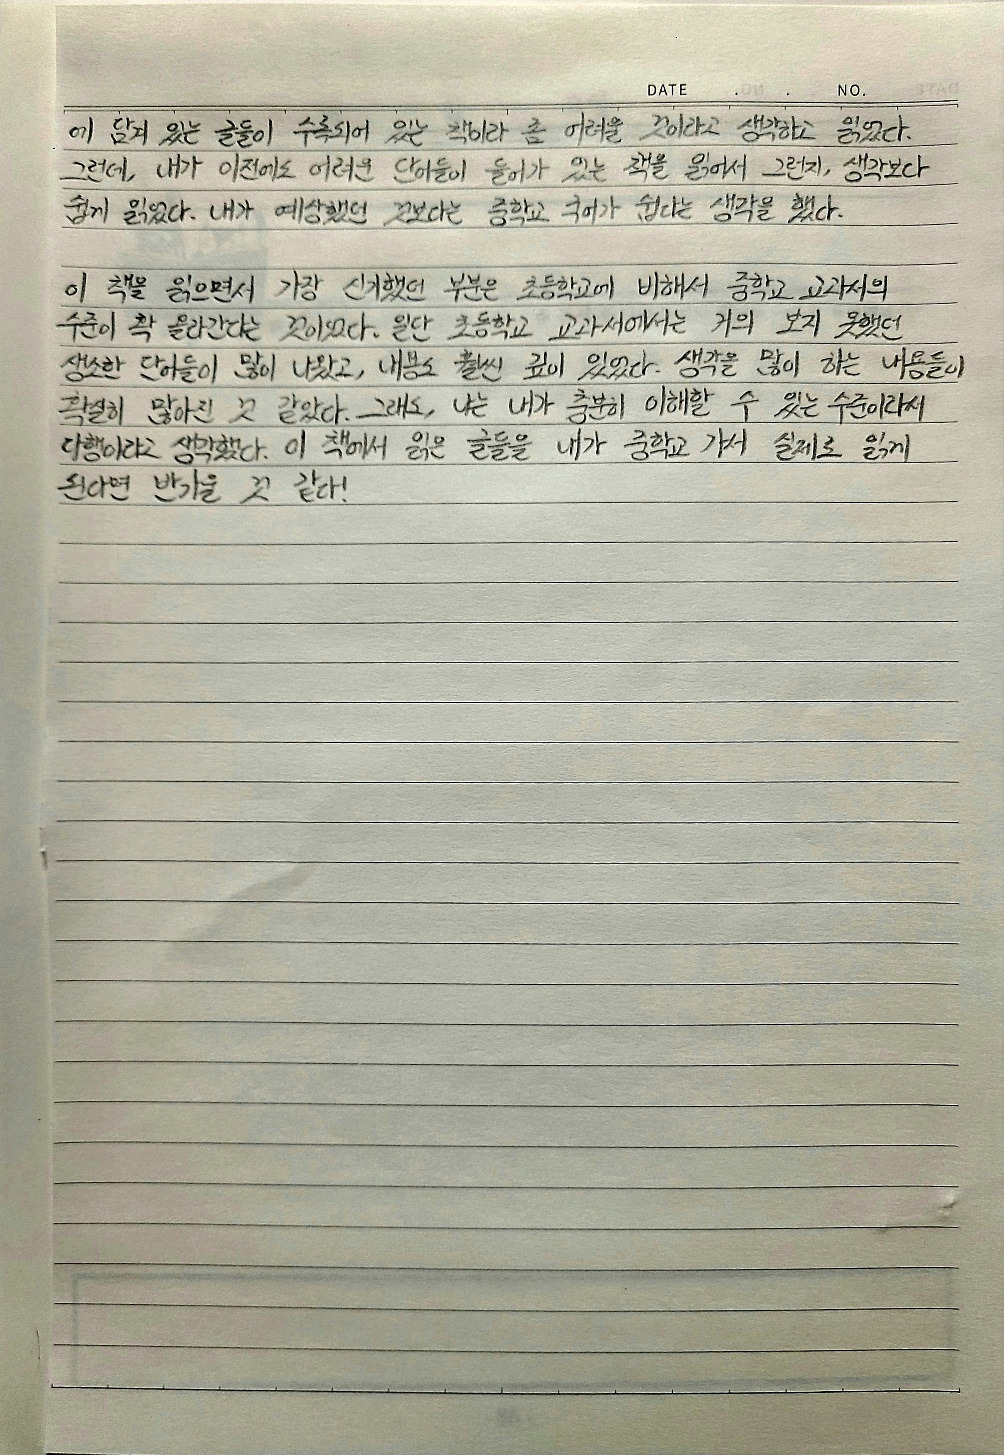 DATE . . NO.
에 담겨 있는 글들이 수록되어 있는 책이라 좀 어려울 것이라고 생각하고 읽었다.
그런데, 내가 이전에도 어려운 단어들이 들어가 있는 책을 읽어서 그런지, 생각보다
쉽게 읽었다. 내가 예상했던 것보다는 중학교 국어가 쉽다는 생각을 했다.
이 책을 읽으면서 가장 신기했던 부분은 초등학교에 비해서 중학교 교과서의
수준이 확 올라간다는 것이었다. 일단 초등학교 교과서에서는 거의 보지 못했던
생소한 단어들이 많이 나왔고, 내용도 훨씬 깊이 있었다. 생각을 많이 하는 내용들이
확실히 많아진 것 같았다. 그래도, 나는 내가 충분히 이해할 수 있는 수준이라서
다행이라고 생각했다. 이 책에서 읽은 글들을 내가 중학교 가서 실제로 읽게
된다면 반가울 것 같다!